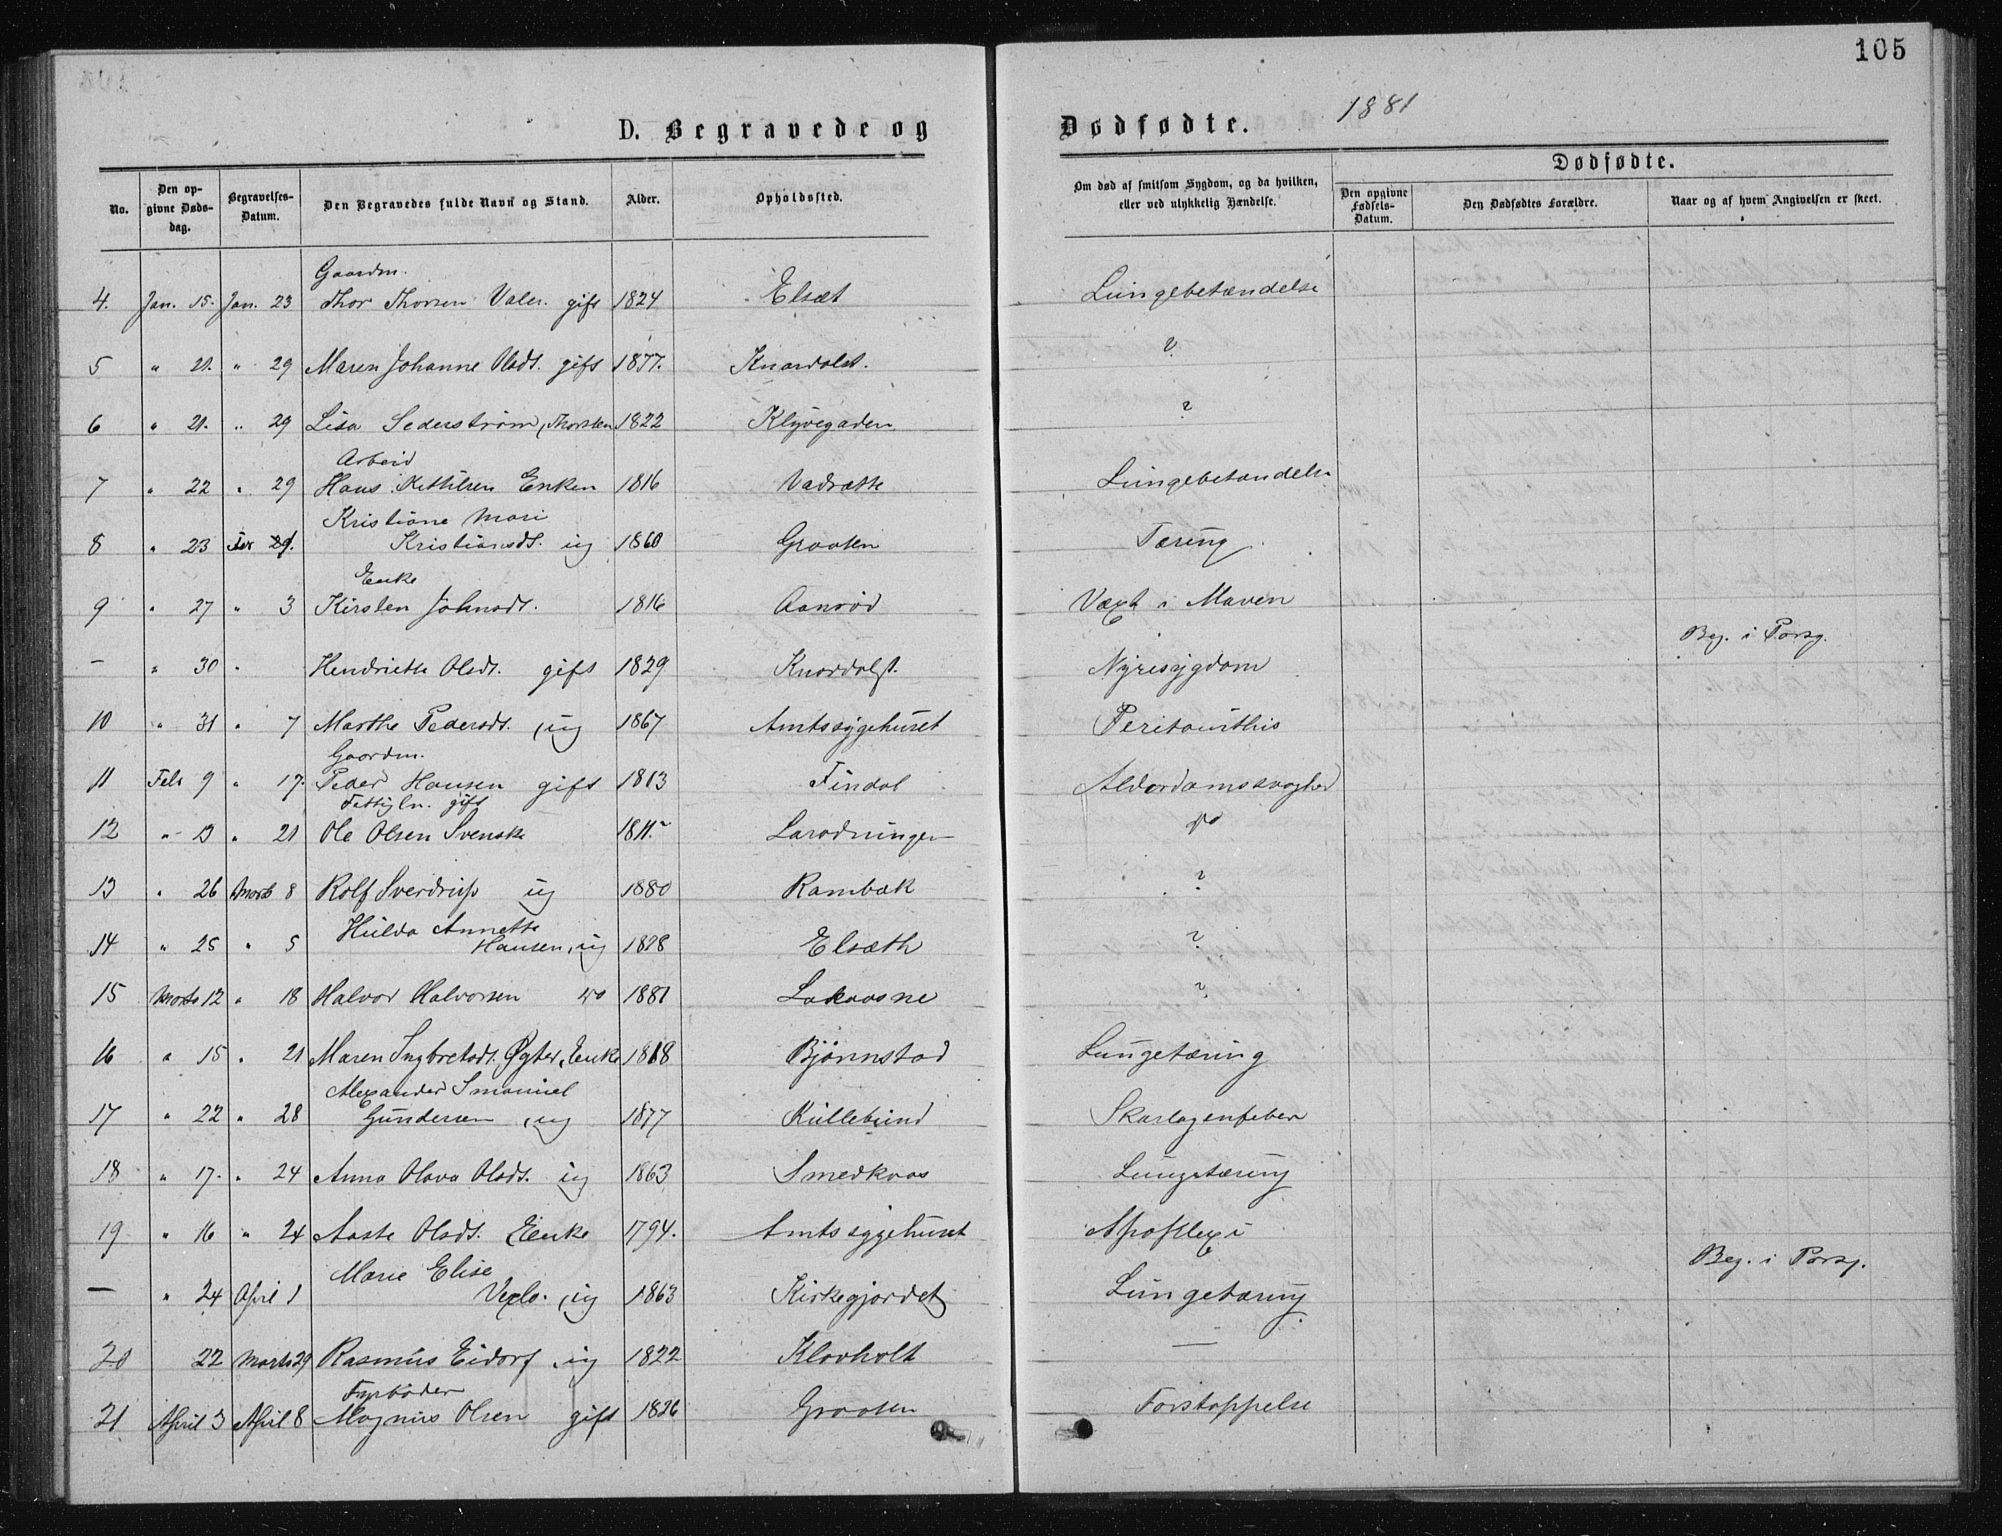 105
1881
D. Begravede og Dødfødte.
Dødfødte.
No. Den opgivne Dødsdag. Begravelses-Datum. Den Begravedes fulde Navn og Stand. Alder. Opholdssted. Om død af smitsom Sygdom, og da hvilken, eller ved ulykkelig Hændelse. Den opgivne Fødsels-Datum. Den Dødfødtes Forældre. Naar og af hvem Angivelsen er skeet.
Gaardm.
4. Jan. 15. Jan. 23 Thor Thorsen Valer. gift 1824 Elsæt Lungebetændelse
5 " 21. " 29 Maren Johanne Olsdt. gift 1877. Knardalst. ?
6 " 21. " 29 Lisa Sederstrøm, Thorsten 1822 Klyvegaden ?
Arbeid
7 " 22 " 29 Hans Kettilsen Enken 1816 Vadrette Lungebetændelse
Kristiane Mari
8 " 23 29. Kristiansdt. ug 1860 Graaten Tæring
Enke
9 " 27 " 3 Kirsten Johnsdt. 1816 Aanrød Væxt i Maven
Beg. i Porsg.
— " 30 " Hendriette Olsdt. gift 1829 Knardalst. Nyresygdom
10 " 31 " 7 Marthe Pedersdt. ug 1867 Amtssygehuset Peritonithis
Gaardm.
11 Feb 9 " 17. Peder Hansen gift 1813 Findal Alderdomssvaghed
Fattigln. gift
12 " 13 " 21 Ole Olsen Svenske 1811. Larødningen do
13 " 26 Marts 8 Rolf Sverdrup ug 1880 Rambæk ?
Hulda Annette
14 " 25 " 5 Hansen, ug 1878 Elsæth ?
15 Marts 12 " 18 Halvor Halvorsen do 1881 Lakaasne ?
16 " 15 " 21 Maren Ingbretsdt. Øyter, Enke 1818 Bjønnstad Lungetæring
Alexander Emanuel
17 " 22 " 28 Gundersen, ug 1877 Kullebund Skarlagenfeber
18 " 17. " 24 Anna Olava Olsdt. ug 1863 Smedkaas Lungetæring
19 " 16 " 24 Aaste Olsdt. Enke 1794. Amtssygehuset Apoplexi
Marie Elise
Beg. i Porsg.
— " 24 April 1 ug 1863 Kirkegjordet Lungetæring.
20 22 Marts 29 Rasmus Eidorf ug 1822 Klovholt —
Fyrbøder
21 April 3 April 8 Magnus Olsen gift 1826 Graaten Forstoppelse